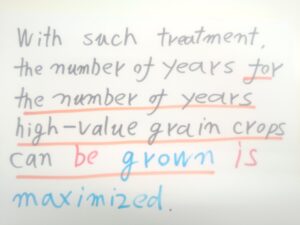 With such treatment,
the number of years for
the number of years
high-value grain crops
can be grown is
maximized.